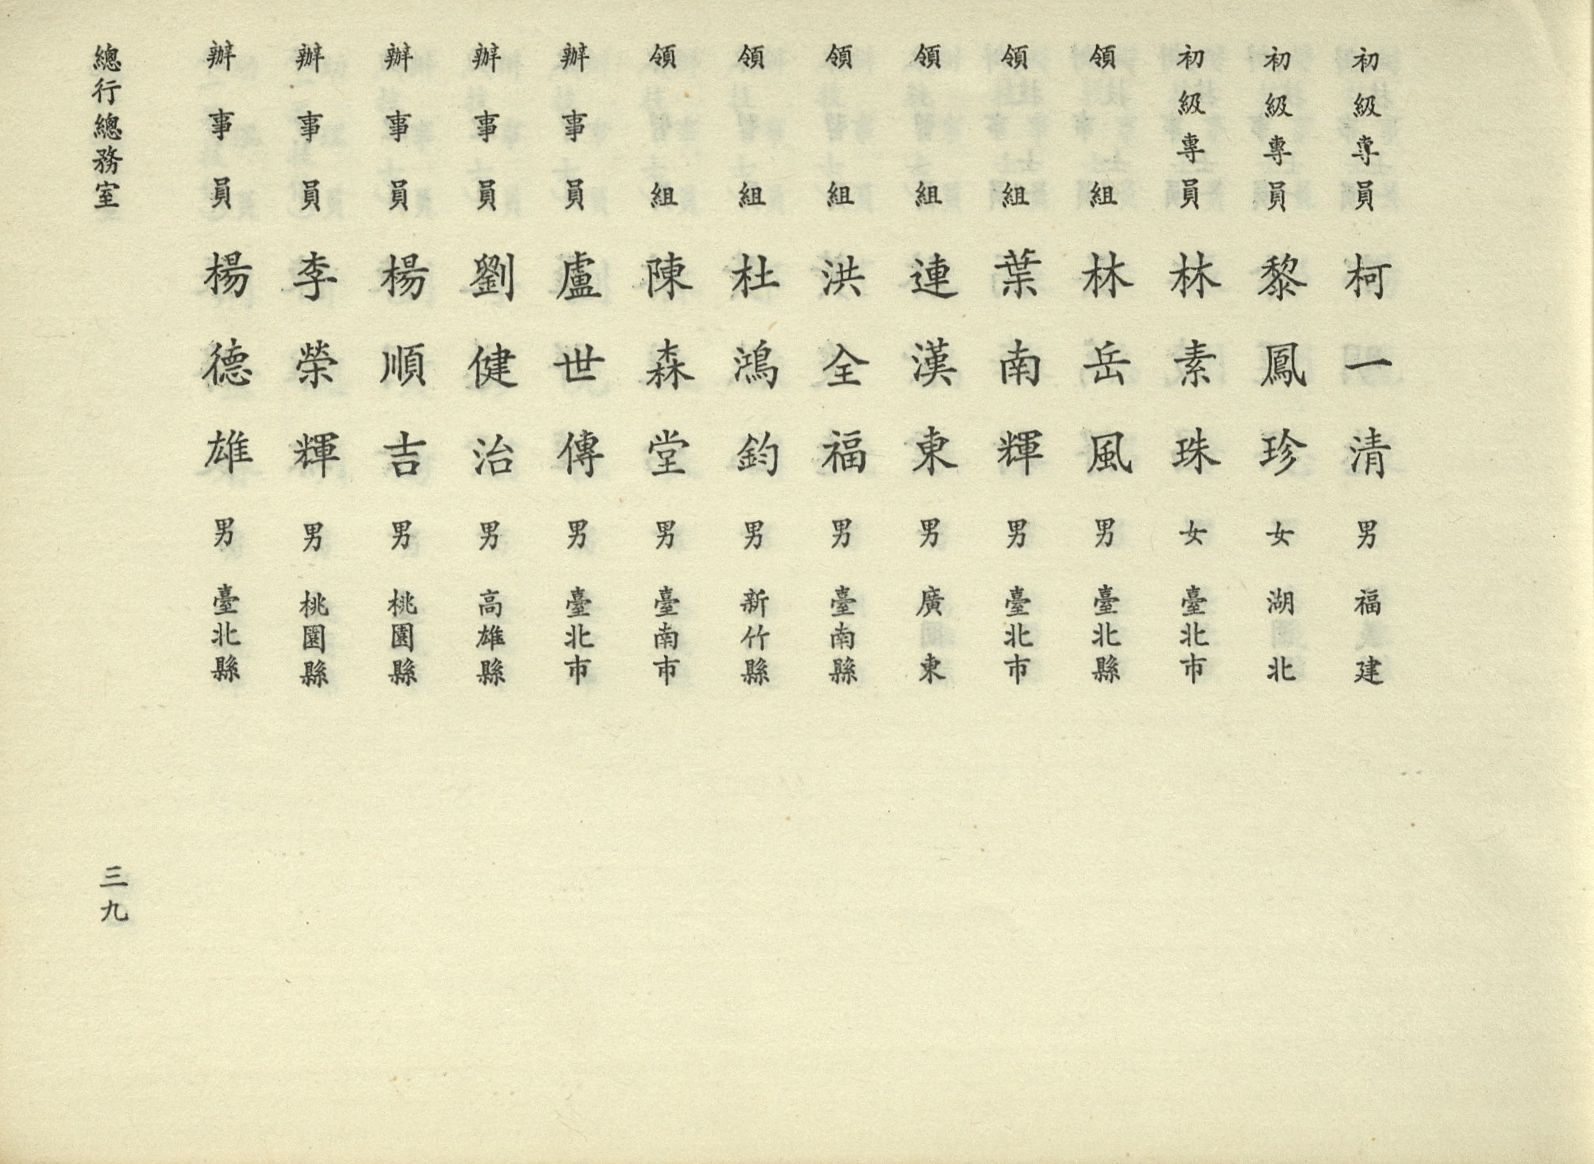 初級專員 柯一清 男 福建
初級專員 黎鳳珍 女 湖北
初級專員 林素珠 女 臺北市
領組 林岳風 男 臺北縣
領組 葉南輝 男 臺北市
領組 連漢東 男 廣東
領組 洪全福 男 臺南縣
領組 杜鴻鈞 男 新竹縣
領組 陳森堂 男 臺南市
辦事員 盧世傳 男 臺北市
辦事員 劉健治 男 高雄縣
辦事員 楊順吉 男 桃園縣
辦事員 李榮輝 男 桃園縣
辦事員 楊德雄 男 臺北縣
總行總務室
三九